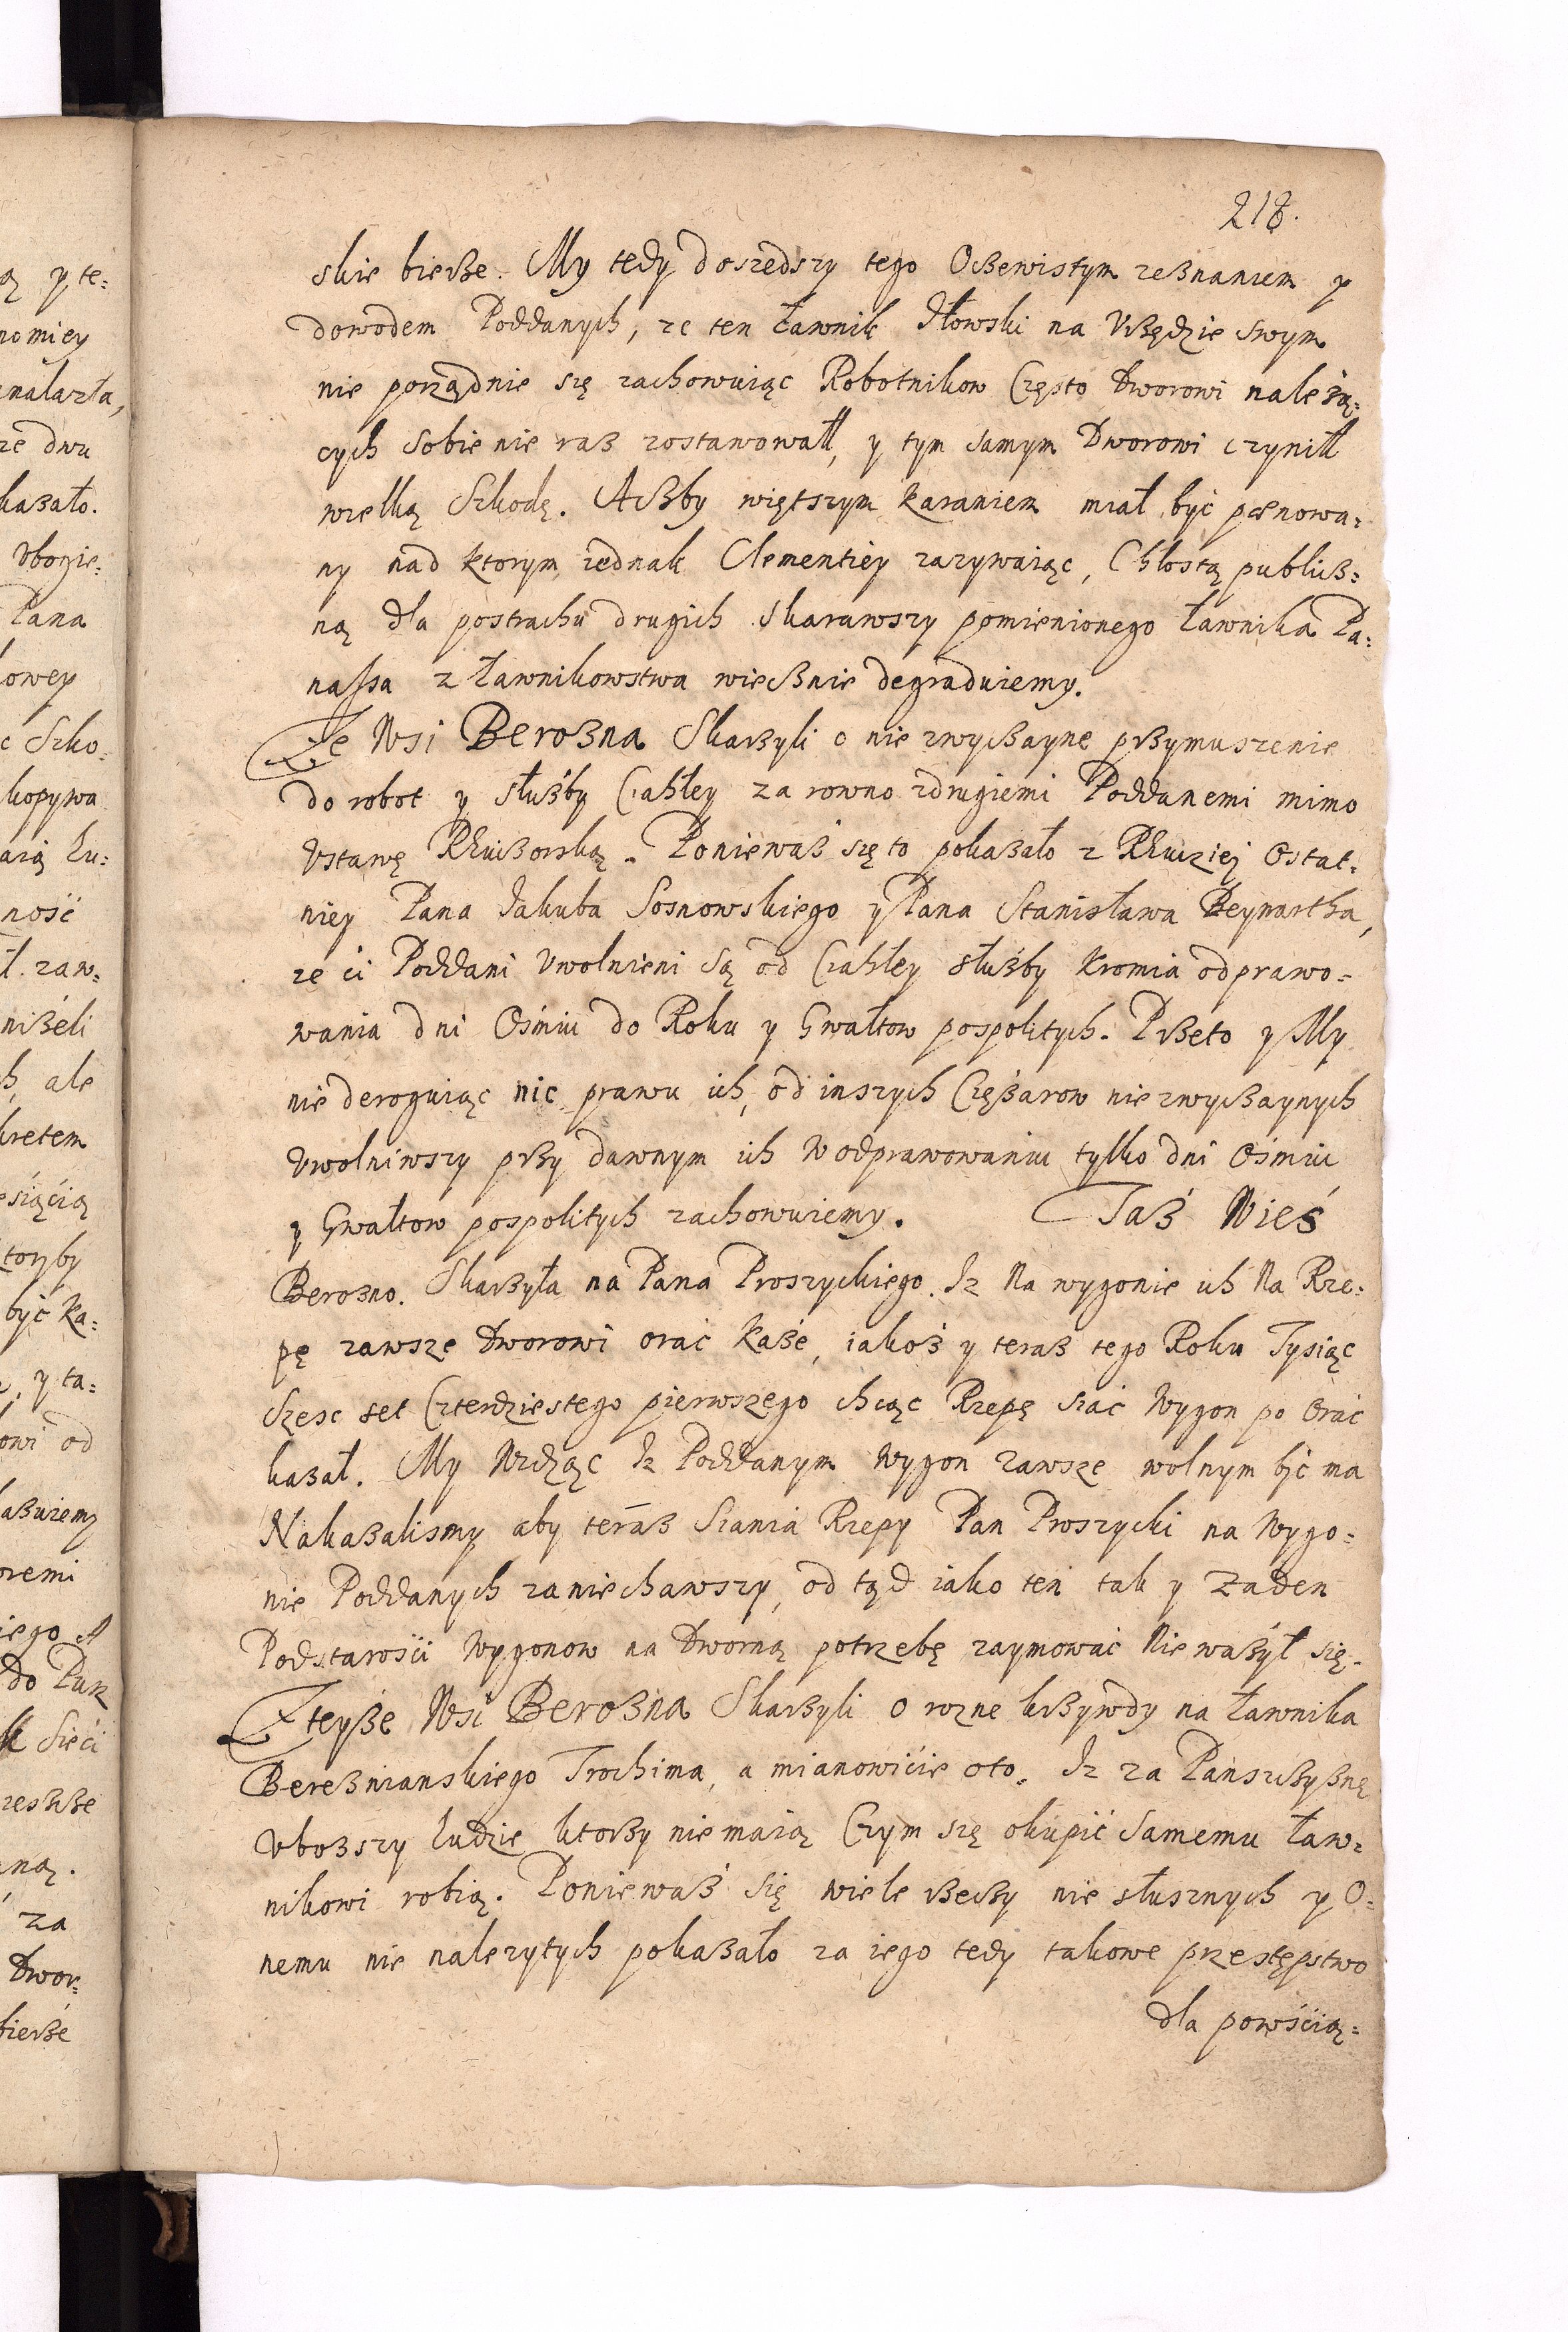 218.
skie bierze. My tedy doszedszy tego Oczewistym zeznaniem y
dowodem Poddanych, ze ten Ławnik Iłowski na Urzędzie swym
nie porządnie się zachowuiąc Robotnikow Często Dworowi należą=
cych sobie nie raz zostawował, y tym samym Dworowi czynił
wielką Szkodę. Aczby większym karaniem miał być pęnowa=
ny nad ktorym iednak Clementiey zazywaiąc, Chłostą publicz=
ną dla postrachu drugich skarawszy pomienionego Ławnika Pa=
nassa z Ławnikowstwa wiecznie degraduiemy.
Ze Wsi Berozna Skarzyli o nie zwyczayne przymuszenie
do robot y służby Ciahłey za rowno z drugiemi Poddanemi mimo
Ustawę Rewizorską. Poniewaz się to pokazało z Rewiziej Ostat=
niey Pana Jakuba Sosnowskiego y Pana Stanisława Beynartha,
ze ci Poddani Uwolnieni są od Ciahłey służby kromia odprawo=
wania dni Ośmiu do Roku y Gwałtow pospolitych. Przeto y My
nie deroguiąc nic prawu ich, od inszych Ciężarow nie zwyczaynych
Uwolniwszy przy dawnym ich W odprawowaniu tylko dni Ośmiu
y Gwałtow pospolitych zachowuiemy. Taż Wieś
Berozno. Skarzyła na Pana Proszyckiego. Iz Na wygonie ich Na Rze=
pę zawsze Dworowi orać każe, iakoż y teraz tego Roku Tysiąc
szesc set Czterdziestego pierwszego chcąc Rzepę siać Wygon po orać
kazał. My Widząc Iz Poddanym Wygon zawsze wolnym być ma
Nakazalismy aby teraz siania Rzepy Pan Proszycki na Wygo=
nie Poddanych zaniechawszy, od tąd iako ten tak y Zaden
Podstarości Wygonow na Dworną potrzebę zaymować Nie ważył się.
Z teyże Wsi Berozna Skarzyli o rozne krzywdy na Ławnika
Berezniańskiego Trochima, a mianowicie oto. Iz za Pańszczyznę
Ubozszy ludzie ktorzy nie maią Czym się okupić samemu Ław=
nikowi robią. Poniewaz się wiele rzeczy nie słusznych y O=
nemu nie nalezytych pokazało za iego tedy takowe przestępstwo
dla powścią=